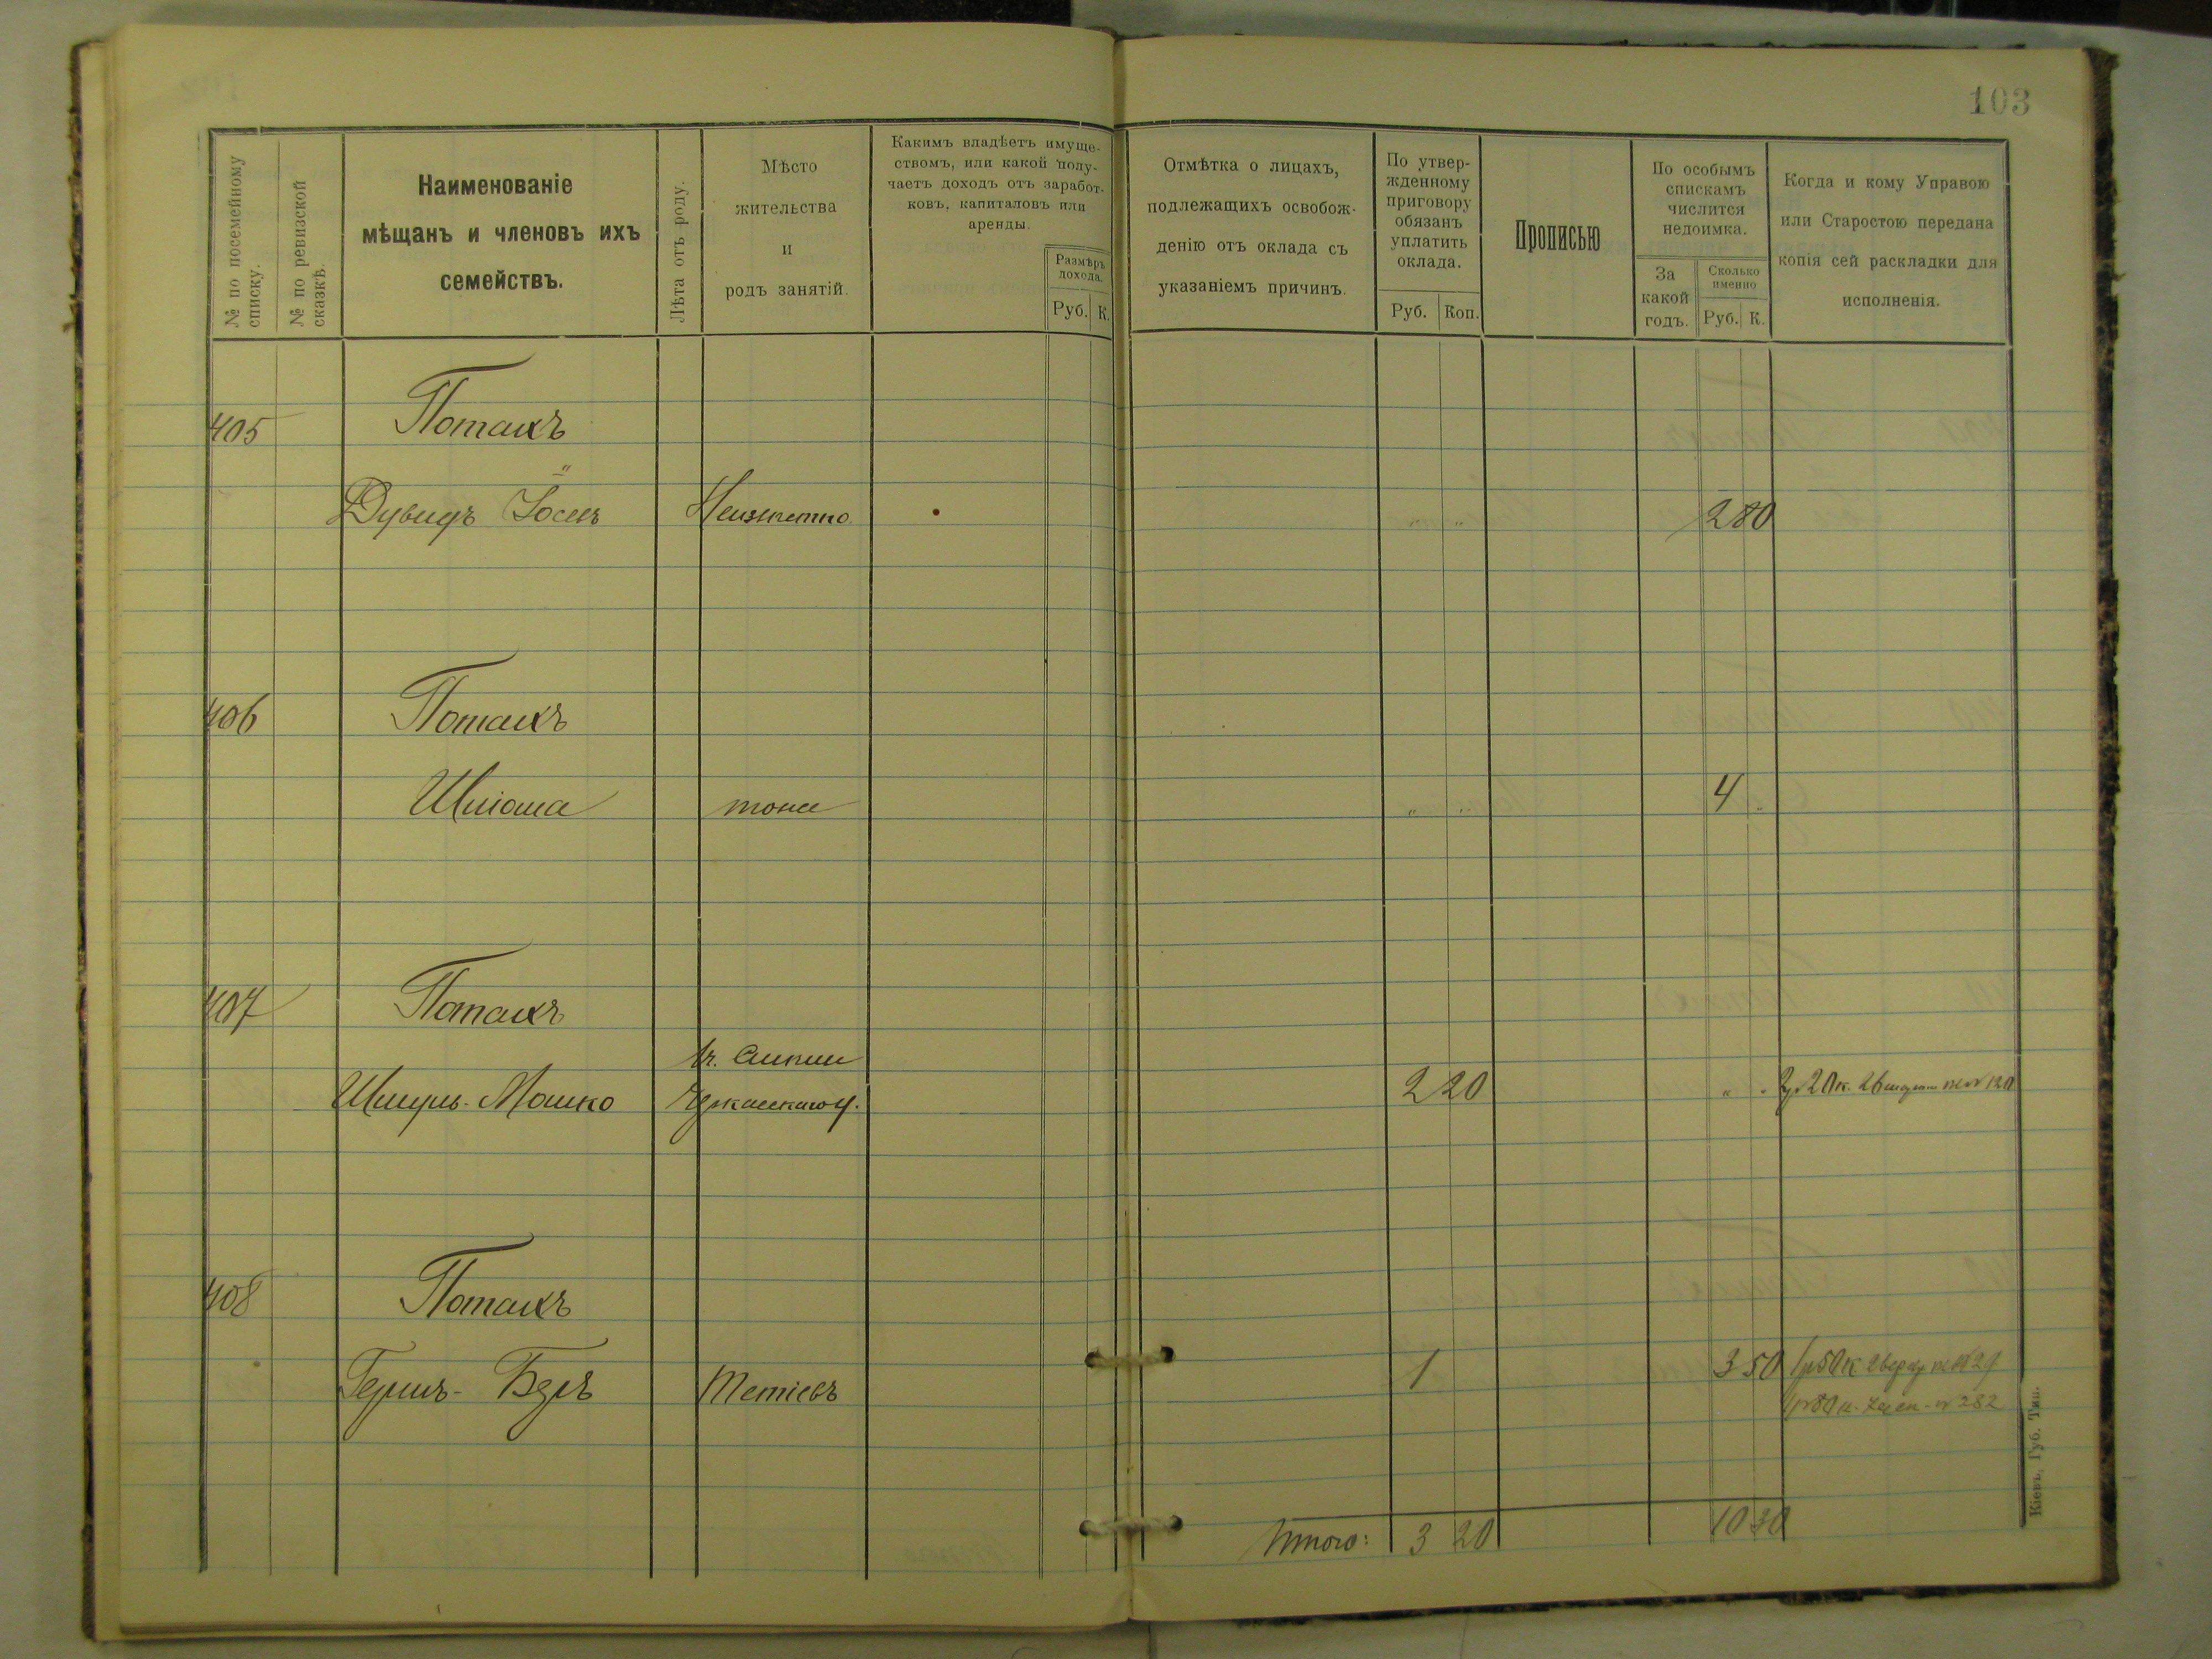 103
№ по посемейному списку.
№ по ревизской сказкѣ.
Наименованіе
мѣщанъ и членовъ ихъ
семействъ.
Лѣта отъ роду.
Мѣсто
жительства
и
родъ занятій.
Какимъ владѣетъ имуще-
ствомъ, или какой полу-
чаетъ доходъ отъ заработ-
ковъ, капиталовъ или
аренды.
Размѣръ
дохода.
Руб. К.
Отмѣтка о лицахъ,
подлежащихъ освобож-
денію отъ оклада съ
указаніемъ причинъ.
По утвер-
жденному
приговору
обязанъ
уплатить
оклада.
Руб. Коп.
Прописью
По особымъ
спискамъ
числится
недоимка.
За
какой
годъ.
Сколько
именно
Руб. К.
Когда и кому Управою
или Старостою передана
копія сей раскладки для
исполненія.
405 Потакъ
Дувидъ Іосъ Неизвѣстно " " 2 80
406 Потакъ
Шліома тоже " " 4 "
407 Потакъ
Шмуль-Мошко Черкасскаго у. 2 20 " "
408 Потакъ
Гершъ-Беръ Тетіевъ 1 3 50
Итого: 3 20 10 30
Кіевъ, Губ. Тип.